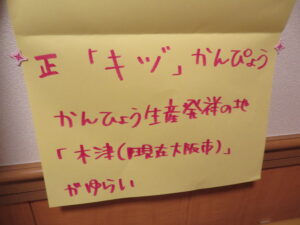 正 「キヅ」かんぴょう
かんぴょう生産発祥の地
「木津(現在大阪市)」
がゆらい